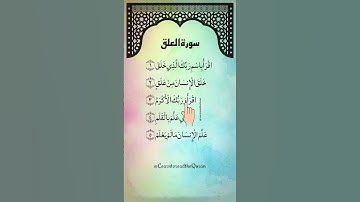 سورة العلق
اقْرَأْ بِاسْمِ رَبِّكَ الَّذِي خَلَقَ ١
خَلَقَ الْإِنسَانَ مِنْ عَلَقٍ ٢
اقْرَأْ وَرَبُّكَ الْأَكْرَمُ ٣
عَلَّمَ بِالْقَلَمِ ٤
عَلَّمَ الْإِنسَانَ مَا لَمْ يَعْلَمْ ٥